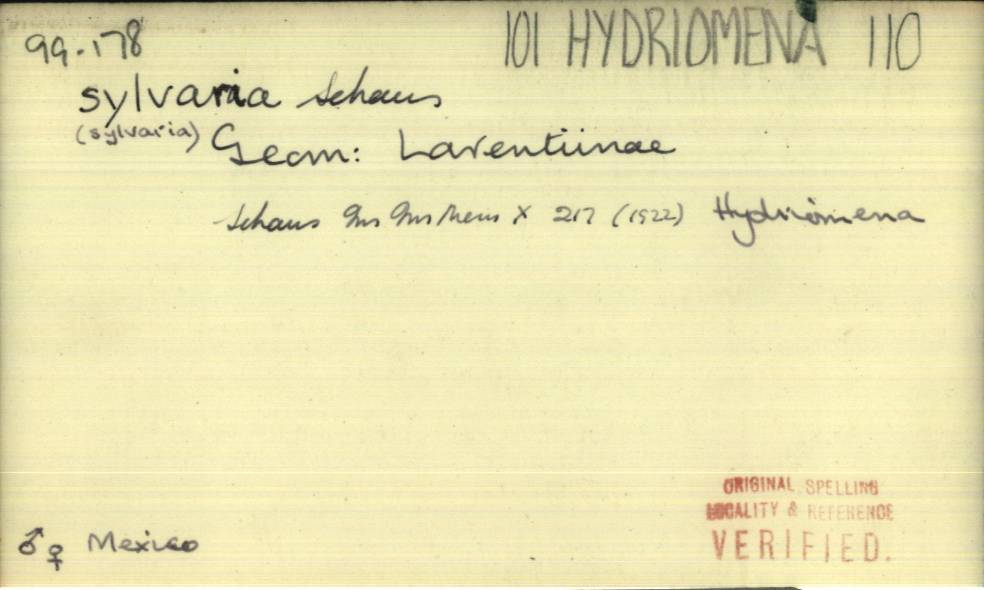 99.178
101 HYDRIOMENA 110
sylvaria Schaus
(sylvaria)
Geom: Larentiinae
Schaus Ins Ins Mens X 217 (1922) Hydriomena
ORIGINAL SPELLING
LOCALITY & REFERENCE
VERIFIED.
♂ ♀ Mexico